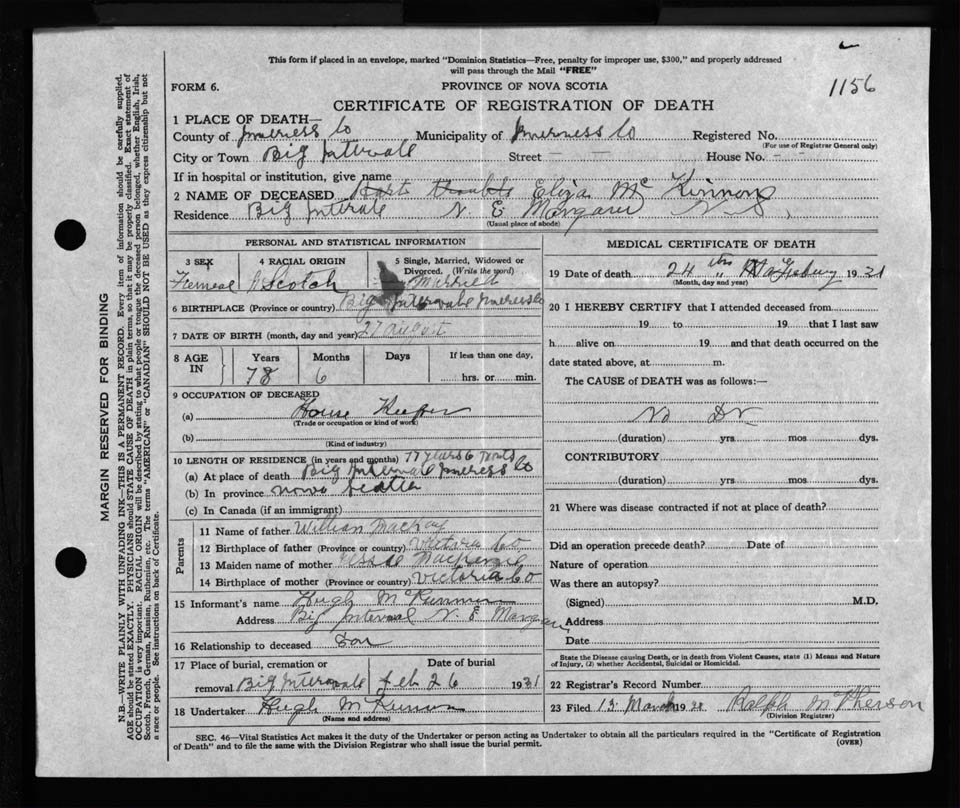 This form if placed in an envelope, marked "Dominion Statistics—Free, penalty for improper use, $300," and properly addressed
will pass through the Mail "FREE"
1156
FORM 6. PROVINCE OF NOVA SCOTIA
CERTIFICATE OF REGISTRATION OF DEATH
1 PLACE OF DEATH—
County of Inverness Co Municipality of Inverness Co Registered No.
(For use of Registrar General only)
City or Town Big Intervale Street — — House No. - -
If in hospital or institution, give name
2 NAME OF DECEASED Eliza Mc Kinnon
Residence Big Interale N. E Margaree N S.
(Usual place of abode)
PERSONAL AND STATISTICAL INFORMATION
3 SEX 4 RACIAL ORIGIN 5 Single, Married, Widowed or Divorced. (Write the word)
Femeal Scotch Married
6 BIRTHPLACE (Province or country) Big Intervale Inverness Co
7 DATE OF BIRTH (month, day and year) 27 august
8 AGE IN Years Months Days If less than one day,
78 6 hrs. or min.
9 OCCUPATION OF DECEASED
(a) House Keeper
(Trade or occupation or kind of work)
(b)
(Kind of industry)
10 LENGTH OF RESIDENCE (in years and months) 77 years 6 monts
(a) At place of death Big Intervale Inverness Co
(b) In province nova scotia
(c) In Canada (if an immigrant)
Parents
11 Name of father William Mackay
12 Birthplace of father (Province or country) Victoria Co
13 Maiden name of mother Mackenzie
14 Birthplace of mother (Province or country) Victoria Co
15 Informant's name Hugh McKinnon
Address Big Interval N. E Margaree
16 Relationship to deceased Son
17 Place of burial, cremation or removal Date of burial
Big Intervale feb 26 1931
18 Undertaker Hugh McKinnon
(Name and address)
MEDICAL CERTIFICATE OF DEATH
19 Date of death 24 ths 1931
(Month, day and year)
20 I HEREBY CERTIFY that I attended deceased from
19 to 19 that I last saw
h alive on 19 and that death occurred on the
date stated above, at m.
The CAUSE of DEATH was as follows:—
No Dr
(duration) yrs. mos dys.
CONTRIBUTORY
(duration) yrs. mos. dys.
21 Where was disease contracted if not at place of death?
Did an operation precede death? Date of
Nature of operation
Was there an autopsy?
(Signed) M.D.
Address
Date
State the Disease causing Death, or in death from Violent Causes, state (1) Means and Nature
of Injury, (2) whether Accidental, Suicidal or Homicidal.
22 Registrar's Record Number
23 Filed 13 March 19 Ralph McPherson
(Division Registrar)
SEC. 46—Vital Statistics Act makes it the duty of the Undertaker or person acting as Undertaker to obtain all the particulars required in the "Certificate of Registration
of Death" and to file the same with the Division Registrar who shall issue the burial permit. (OVER)
MARGIN RESERVED FOR BINDING
N.B.—WRITE PLAINLY WITH UNFADING INK—THIS IS A PERMANENT RECORD. Every item of information should be carefully supplied.
AGE should be stated EXACTLY. PHYSICIANS should STATE CAUSE OF DEATH in plain terms, so that it may be properly classified. Exact statement of
OCCUPATION is very important. RACIAL ORIGIN will be described by stating to what people or tongue the deceased person belonged, whether English, Irish,
Scotch, French, German, Russian, Ruthenian, etc. The terms "AMERICAN" or "CANADIAN" SHOULD NOT BE USED as they express citizenship but not
a race or people. See instructions on back of Certificate.